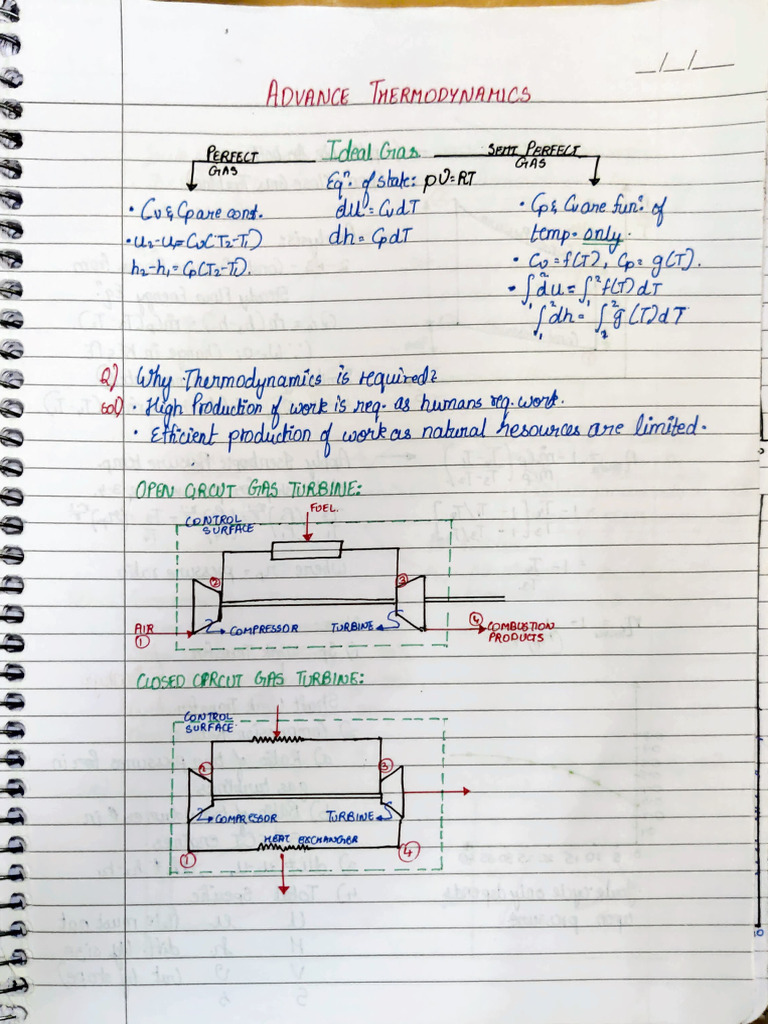 _/_/__
ADVANCE THERMODYNAMICS
PERFECT GAS Ideal Gas SEMI PERFECT GAS
Eqⁿ. of state: pv=RT
• Cv & Cp are cont.
• u₂-u₁=Cv(T₂-T₁)
h₂-h₁=Cp(T₂-T₁).
du=CvdT
dh=CpdT
• Cp & Cv are funⁿ. of
temp. only.
• Cv=f(T), Cp=g(T).
• ∫₁²du=∫₁²f(T)dT
∫₁²dh=∫₁²g(T)dT
Q) Why Thermodynamics is required?
Sol) • High Production of work is req. as humans req. work.
• Efficient production of work as natural resources are limited.
OPEN CIRCUT GAS TURBINE:
FUEL
CONTROL
SURFACE
② ③
AIR
①
COMPRESSOR TURBINE
④ COMBUSTION
PRODUCTS
CLOSED CIRCUT GAS TURBINE:
CONTROL
SURFACE
② ③
COMPRESSOR TURBINE
HEAT EXCHANGER
① ④